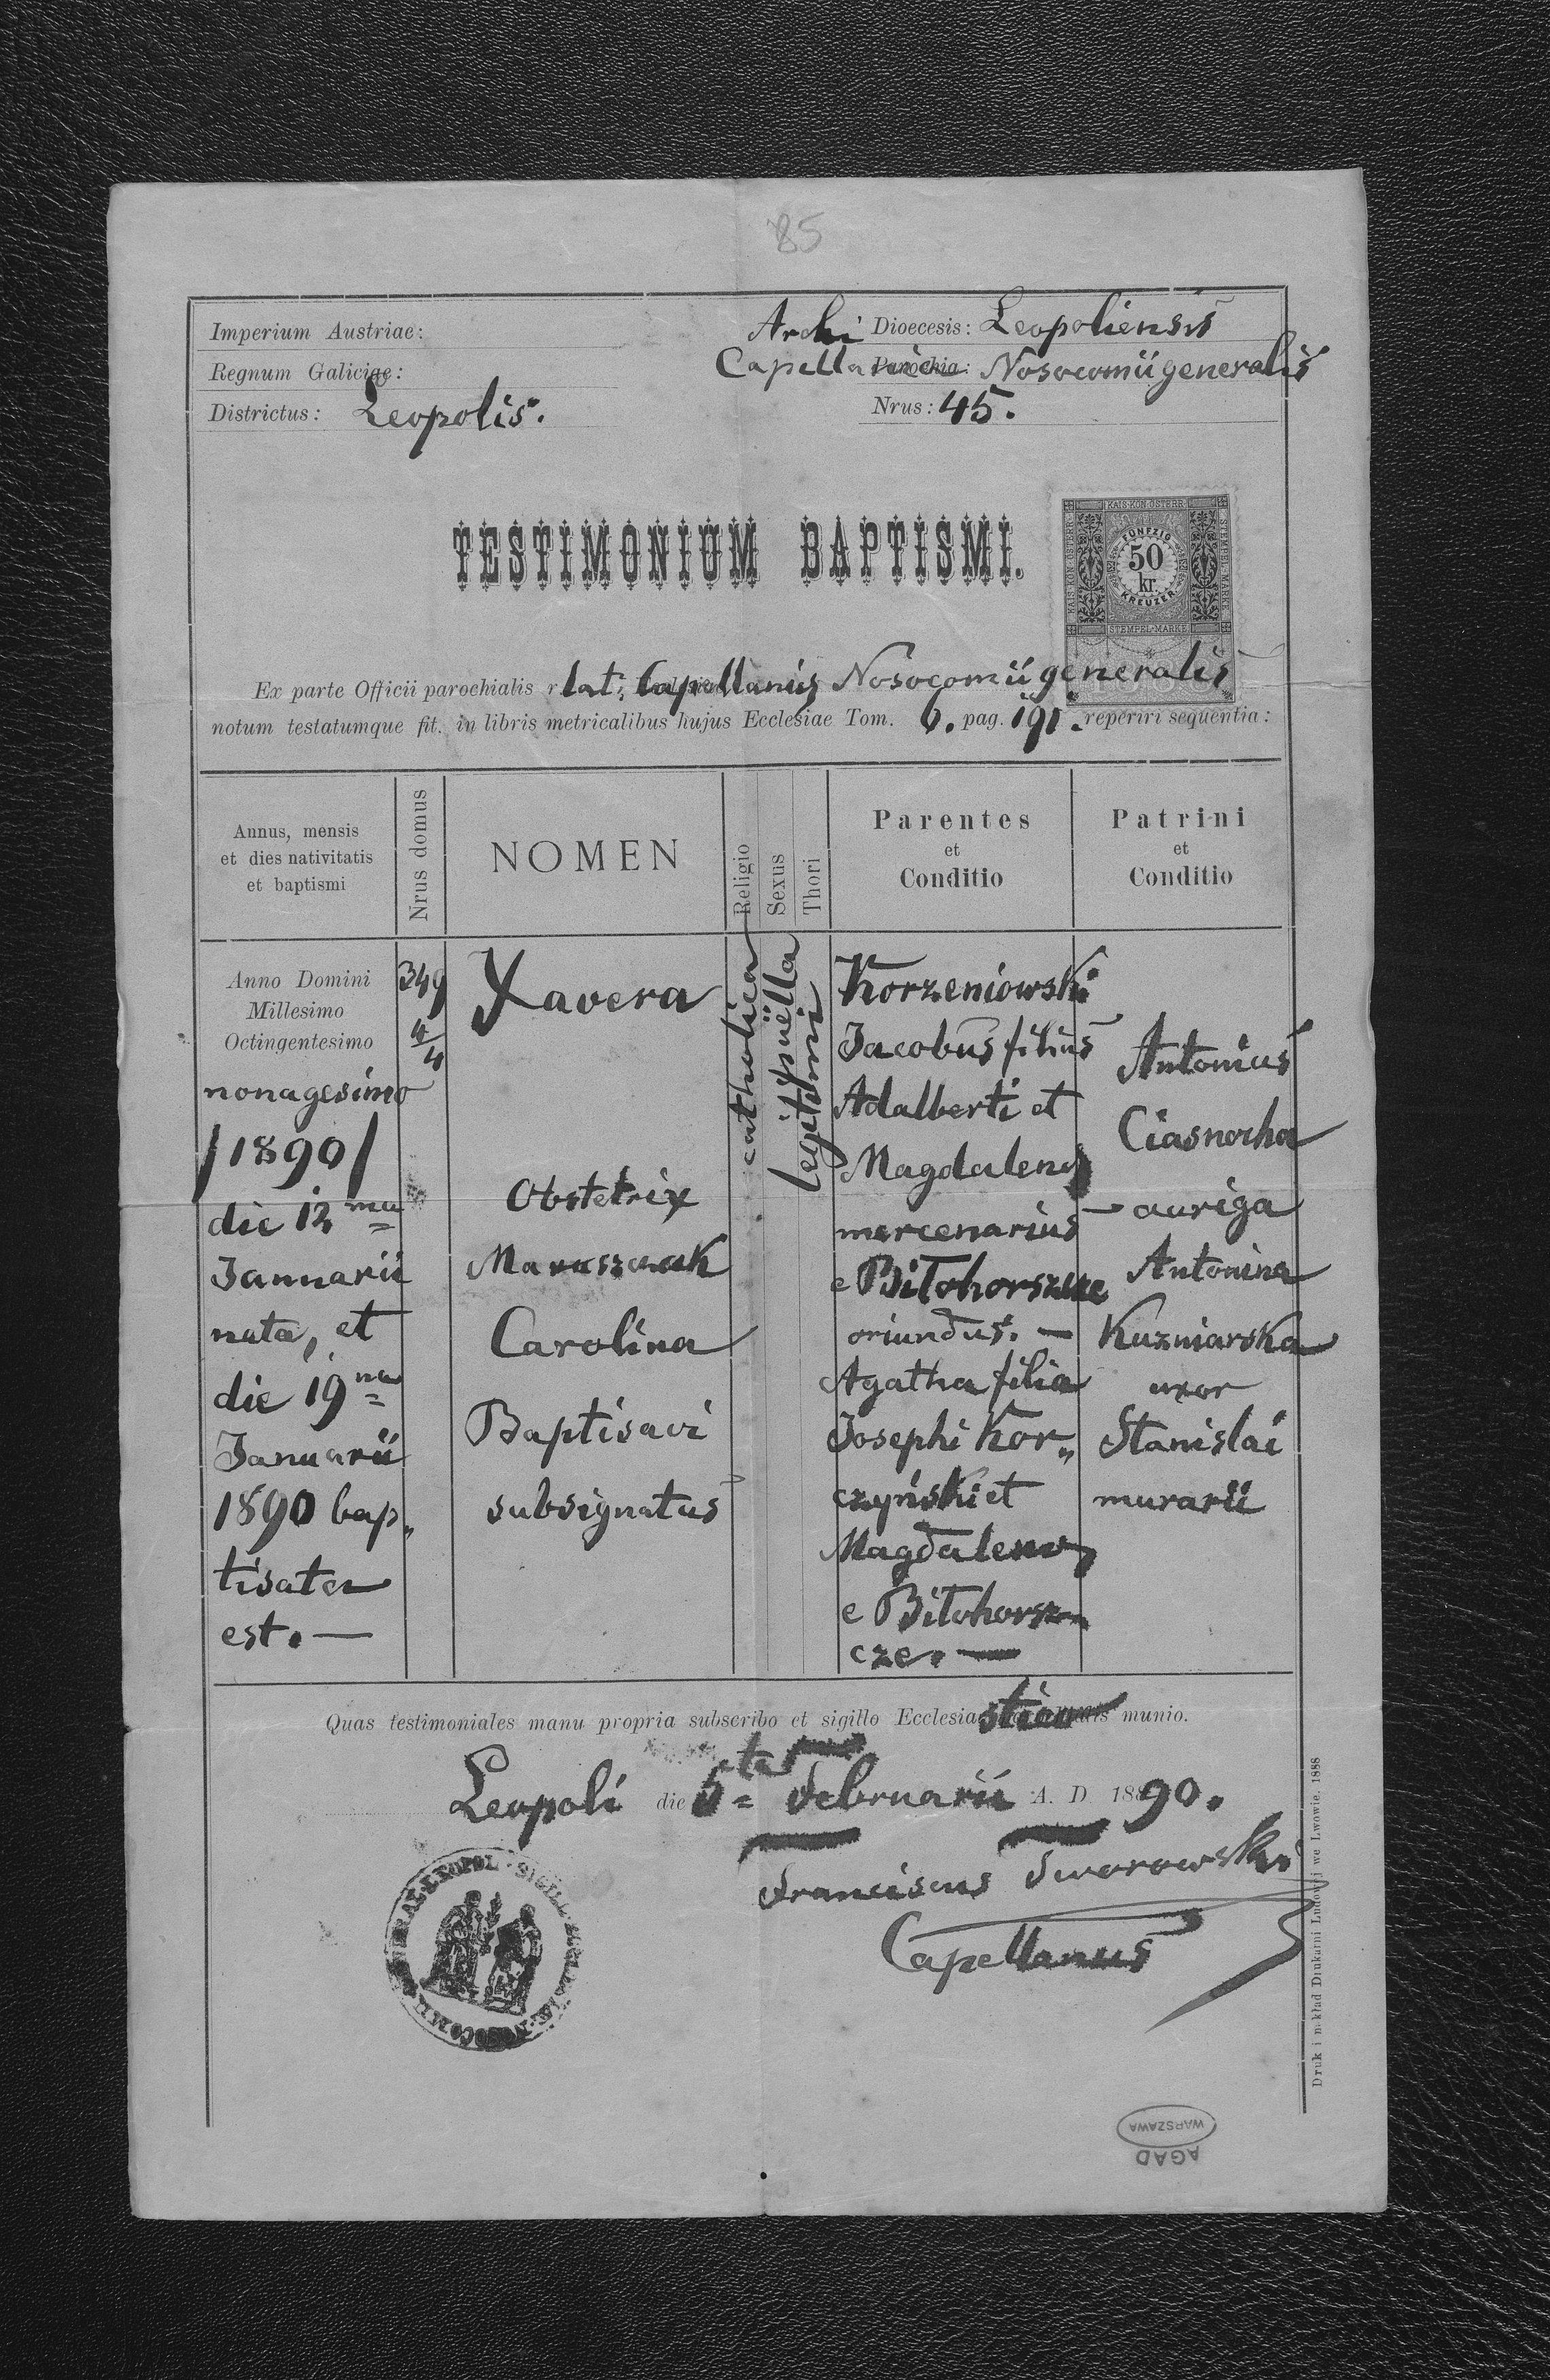 85
Imperium Austriae:
Archi Dioecesis: Leopoliensis
Regnum Galiciae:
Capellania Nosocomii generalis
Districtus: Leopolis.
Nrus: 45.
TESTIMONIUM BAPTISMI.
KAIS. KÖN. ÖSTERR.
FÜNFZIG
50
kr.
KREUZER
STEMPEL-MARKE
Ex parte Officii parochialis r. lat. Capellaniis Nosocomii generalis
notum testatumque fit. in libris metricalibus hujus Ecclesiae Tom. 6. pag. 191. reperiri sequentia:
Annus, mensis
et dies nativitatis
et baptismi
Nrus domus
NOMEN
Religio
Sexus
Thori
Parentes
et
Conditio
Patrini
et
Conditio
Anno Domini
Millesimo
Octingentesimo
nonagesimo
/1890/
die 12ma
Januarii
nata, et
die 19na
Januarii
1890 bap„
tisata
est. —
349
4/4
Xavera
Obstetrix
Maruszczak
Carolina
Baptisavi
subsignatus
catholica
puella
legitimi
Korzeniowski
Jacobus filius
Adalberti et
Magdalenæ
mercenarius
e Biłohorszcze
oriundus. —
Agatha filia
Josephi Kor„
czyński et
Magdalenæ
e Biłohorsz„
cze. —
Antonius
Ciasnocha
— auriga
Antonina
Kuzniarska
uxor
Stanislai
murarii
Quas testimoniales manu propria subscribo et sigillo Ecclesiastico munio.
Leopoli die 5ta Februarii A. D. 1890.
Franciscus Dworowski
Capellanus
Druk i nakład Drukarni Ludowej we Lwowie. 1888
WARSZAWA
AGAD